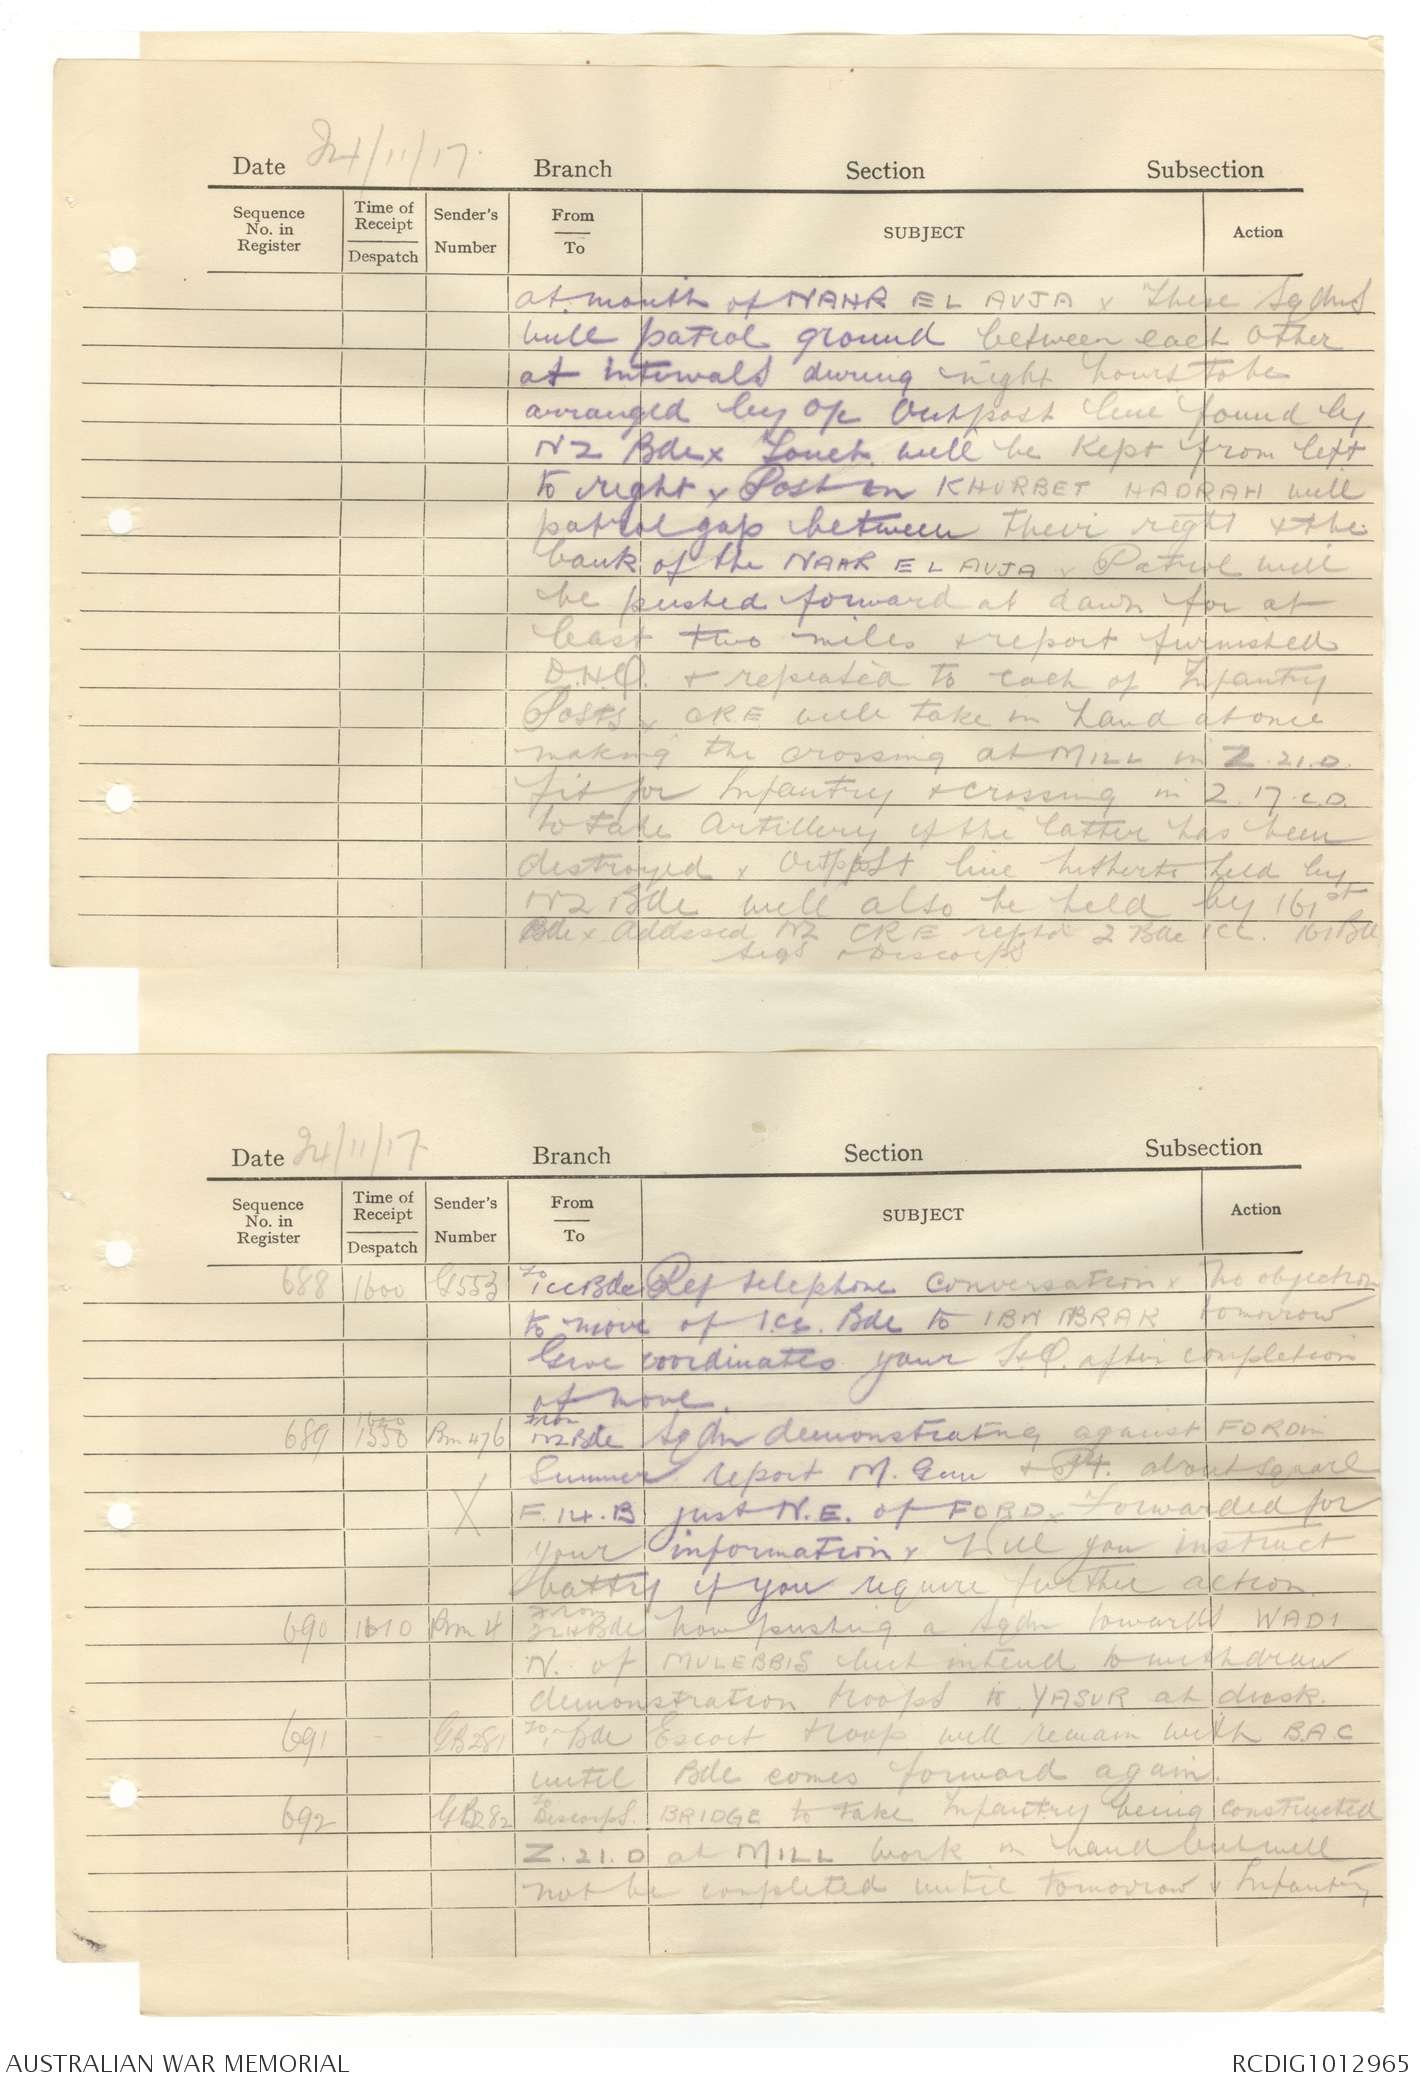 Date 24/11/17. Branch Section Subsection
Sequence No. in Register Time of Receipt Despatch Sender's Number From To SUBJECT Action
at mouth of NAHR EL AUJA x These Sqdns
will patrol ground between each other
at intervals during night hours to be
arranged by Op Outpost line found by
NZ Bde x Touch will be kept from left
to right x Post in KHURBET HADRAH will
patrol gap between their right & the
bank of the NAHR EL AUJA x Patrol will
be pushed forward at dawn for at
least two miles & report furnished
D.H.Q. & repeated to each of Infantry
Posts x CRE will take in hand at once
making the crossing at MILL in Z.21.D.
fit for Infantry & crossing in Z.17.C.D.
to take Artillery if the latter has been
destroyed x Outpost line hitherto held by
NZ Bde will also be held by 161st
Bde x Addssed NZ CRE reptd 2 Bde ICC. 161 Bde
Sigs & Descorps
Date 24/11/17 Branch Section Subsection
Sequence No. in Register Time of Receipt Despatch Sender's Number From To SUBJECT Action
688 1600 G553 To ICC Bde Ref telephone conversation x No objection
to move of I.C.C. Bde to IBN IBRAK tomorrow
Give coordinates your H.Q. after completion
of move.
689 1600 1550 Bm 476 From NZ Bde Sqdn demonstrating against FORD in
Summer report M. Gun & Pt. about square
X F.14.B just N.E. of FORD x Forwarded for
your information x Will you instruct
battry if you require further action.
690 1610 Bm 4 From 2LH Bde Now pushing a Sqdn towards WADI
N. of MULEBBIS but intend to withdraw
demonstration troops to YASUR at dusk.
691 - GB281 To 1 Bde Escort troop will remain with B.A.C
until Bde comes forward again.
692 GB282 To Descorps. BRIDGE to take Infantry being constructed
Z.21.D at MILL work in hand but will
not be completed until tomorrow x Infantry
AUSTRALIAN WAR MEMORIAL RCDIG1012965